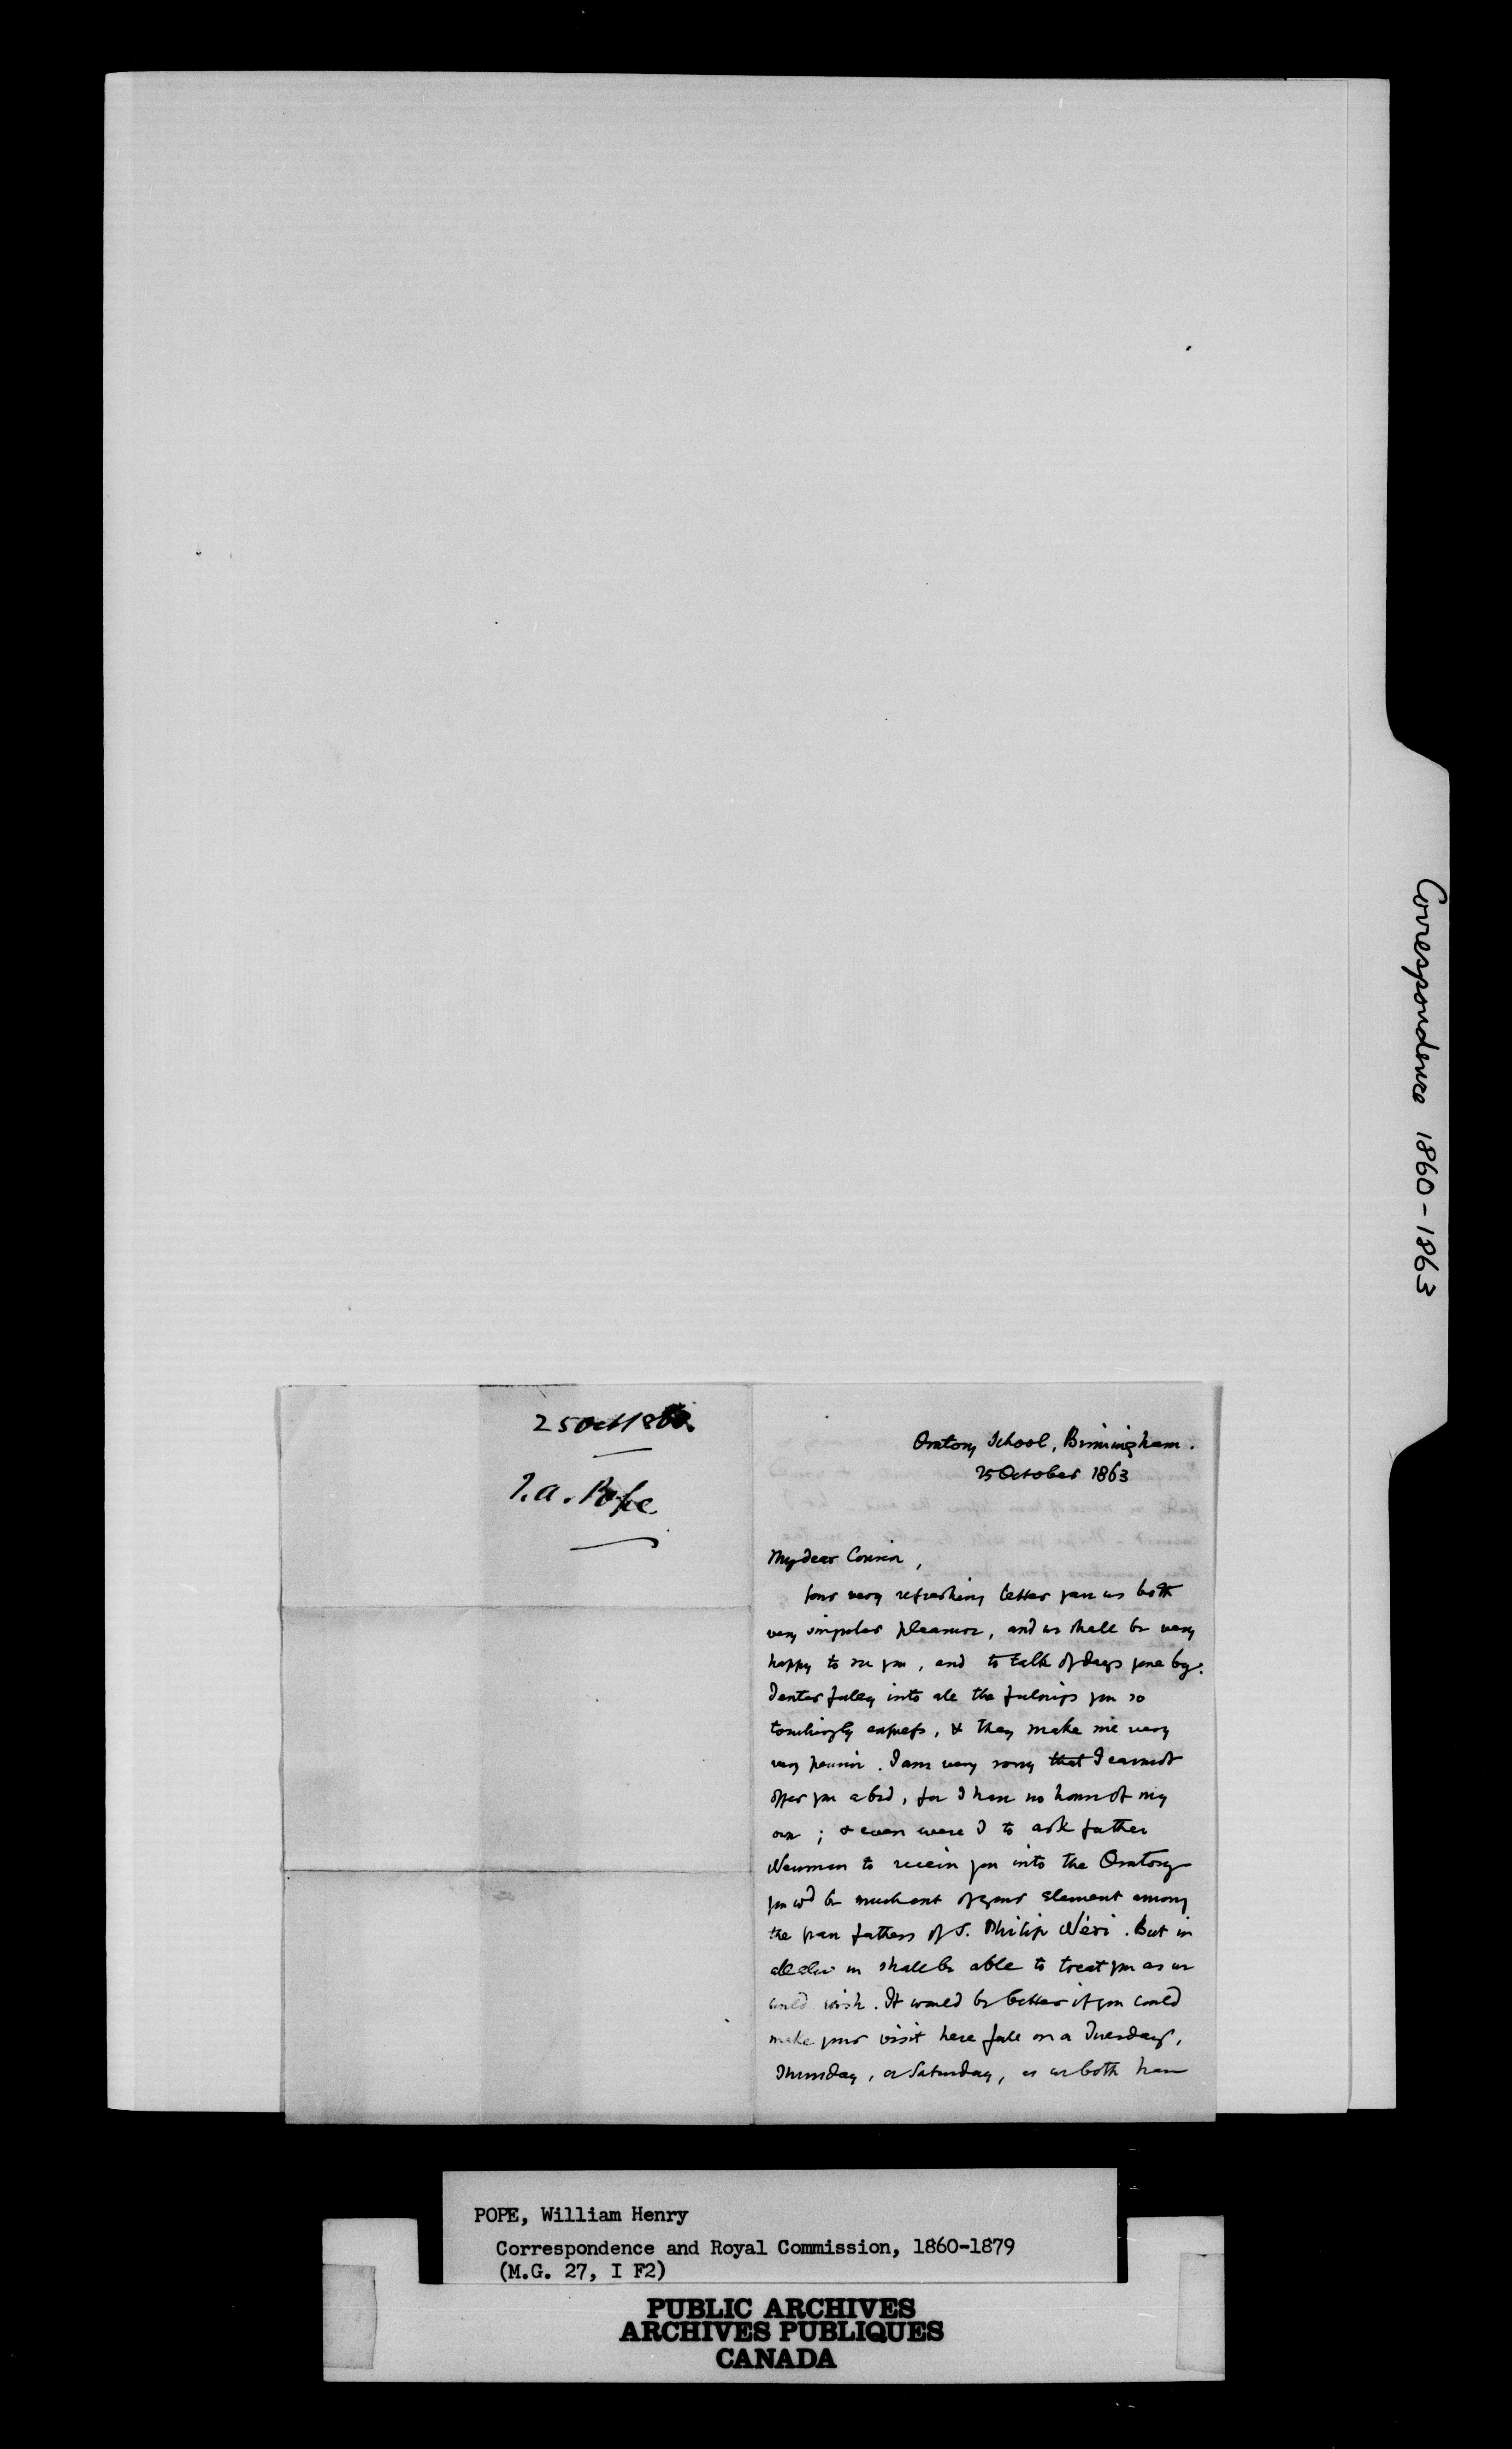 Correspondence 1860-1863
25 Oct 1863
T. A. Pope
Oratory School, Birmingham.
25 October 1863
My dear Cousin,
Your very refreshing letter gave us both
very singular pleasure, and we shall be very
happy to see you, and to talk of days gone by.
I enter fully into all the feelings you so
touchingly express, & they make me very
very pensive. I am very sorry that I cannot
offer you a bed, for I have no house of my
own; & even were I to ask father
Newman to receive you into the Oratory
you wd be much out of your element among
the grave fathers of S. Philip Néri. But in
all else we shall be able to treat you as we
could wish. It would be better if you could
make your visit here fall on a Tuesday,
Thursday, or Saturday, as we both have
POPE, William Henry
Correspondence and Royal Commission, 1860-1879
(M.G. 27, I F2)
PUBLIC ARCHIVES
ARCHIVES PUBLIQUES
CANADA